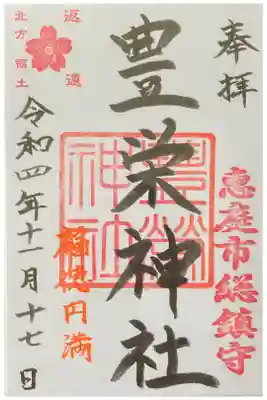 奉拝
恵庭市総鎮守
豊栄神社
豐榮神社
福徳円満
令和四年十一月十七日
返還
北方領土